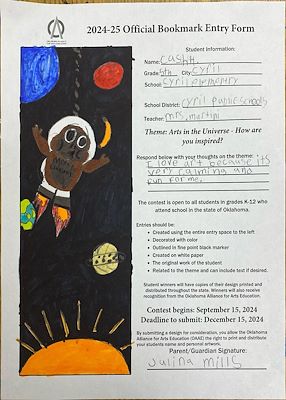 2024-25 Official Bookmark Entry Form
Student Information:
Name: Cash H.
Grade: 5th City Cyril
School: Cyril elementery
School District: Cyril public schools
Teacher: mrs. martini
Theme: Arts in the Universe - How are
you inspired?
Respond below with your thoughts on the theme:
I love art because its
very calming and
fun for me.
The contest is open to all students in grades K-12 who
attend school in the state of Oklahoma.
Entries should be:
• Created using the entire entry space to the left
• Decorated with color
• Outlined in fine point black marker
• Created on white paper
• The original work of the student
• Related to the theme and can include text if desired.
Student winners will have copies of their design printed and
distributed throughout the state. Winners will also receive
recognition from the Oklahoma Alliance for Arts Education.
Contest begins: September 15, 2024
Deadline to submit: December 15, 2024
By submitting a design for consideration, you allow the Oklahoma
Alliance for Arts Education (OAAE) the right to print and distribute
your students name and personal artwork.
Parent/Guardian Signature:
Julina mills